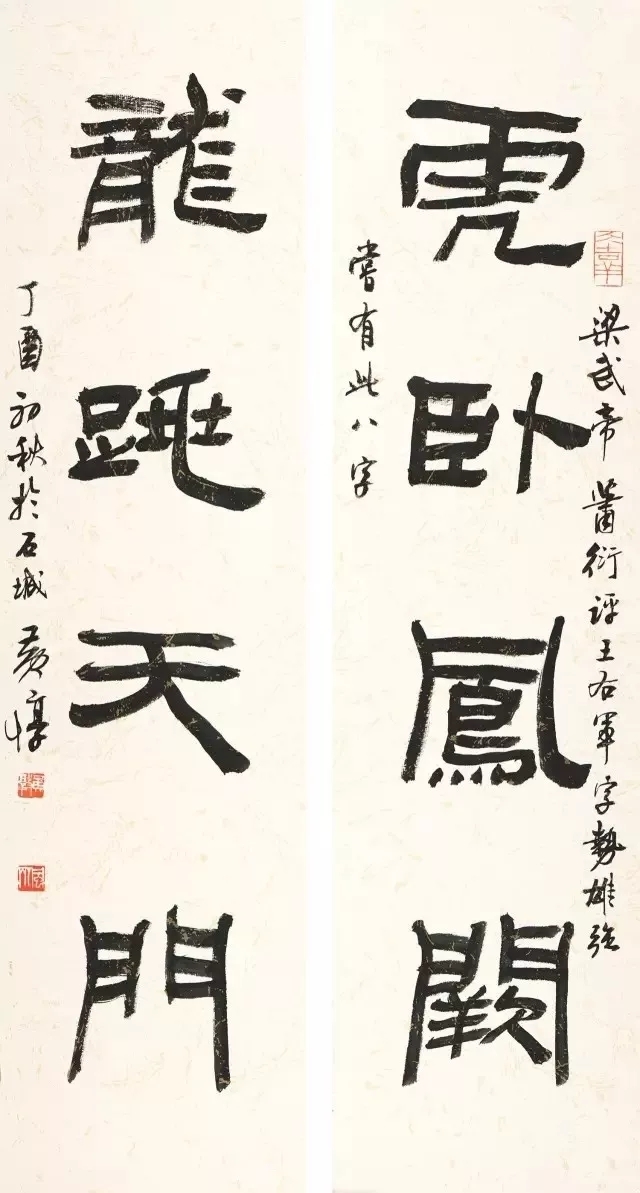 梁武帝蕭衍評王右軍字勢雄强
虎卧鳳闕
嘗有此八字
龍跳天門
丁酉初秋於石城黄惇